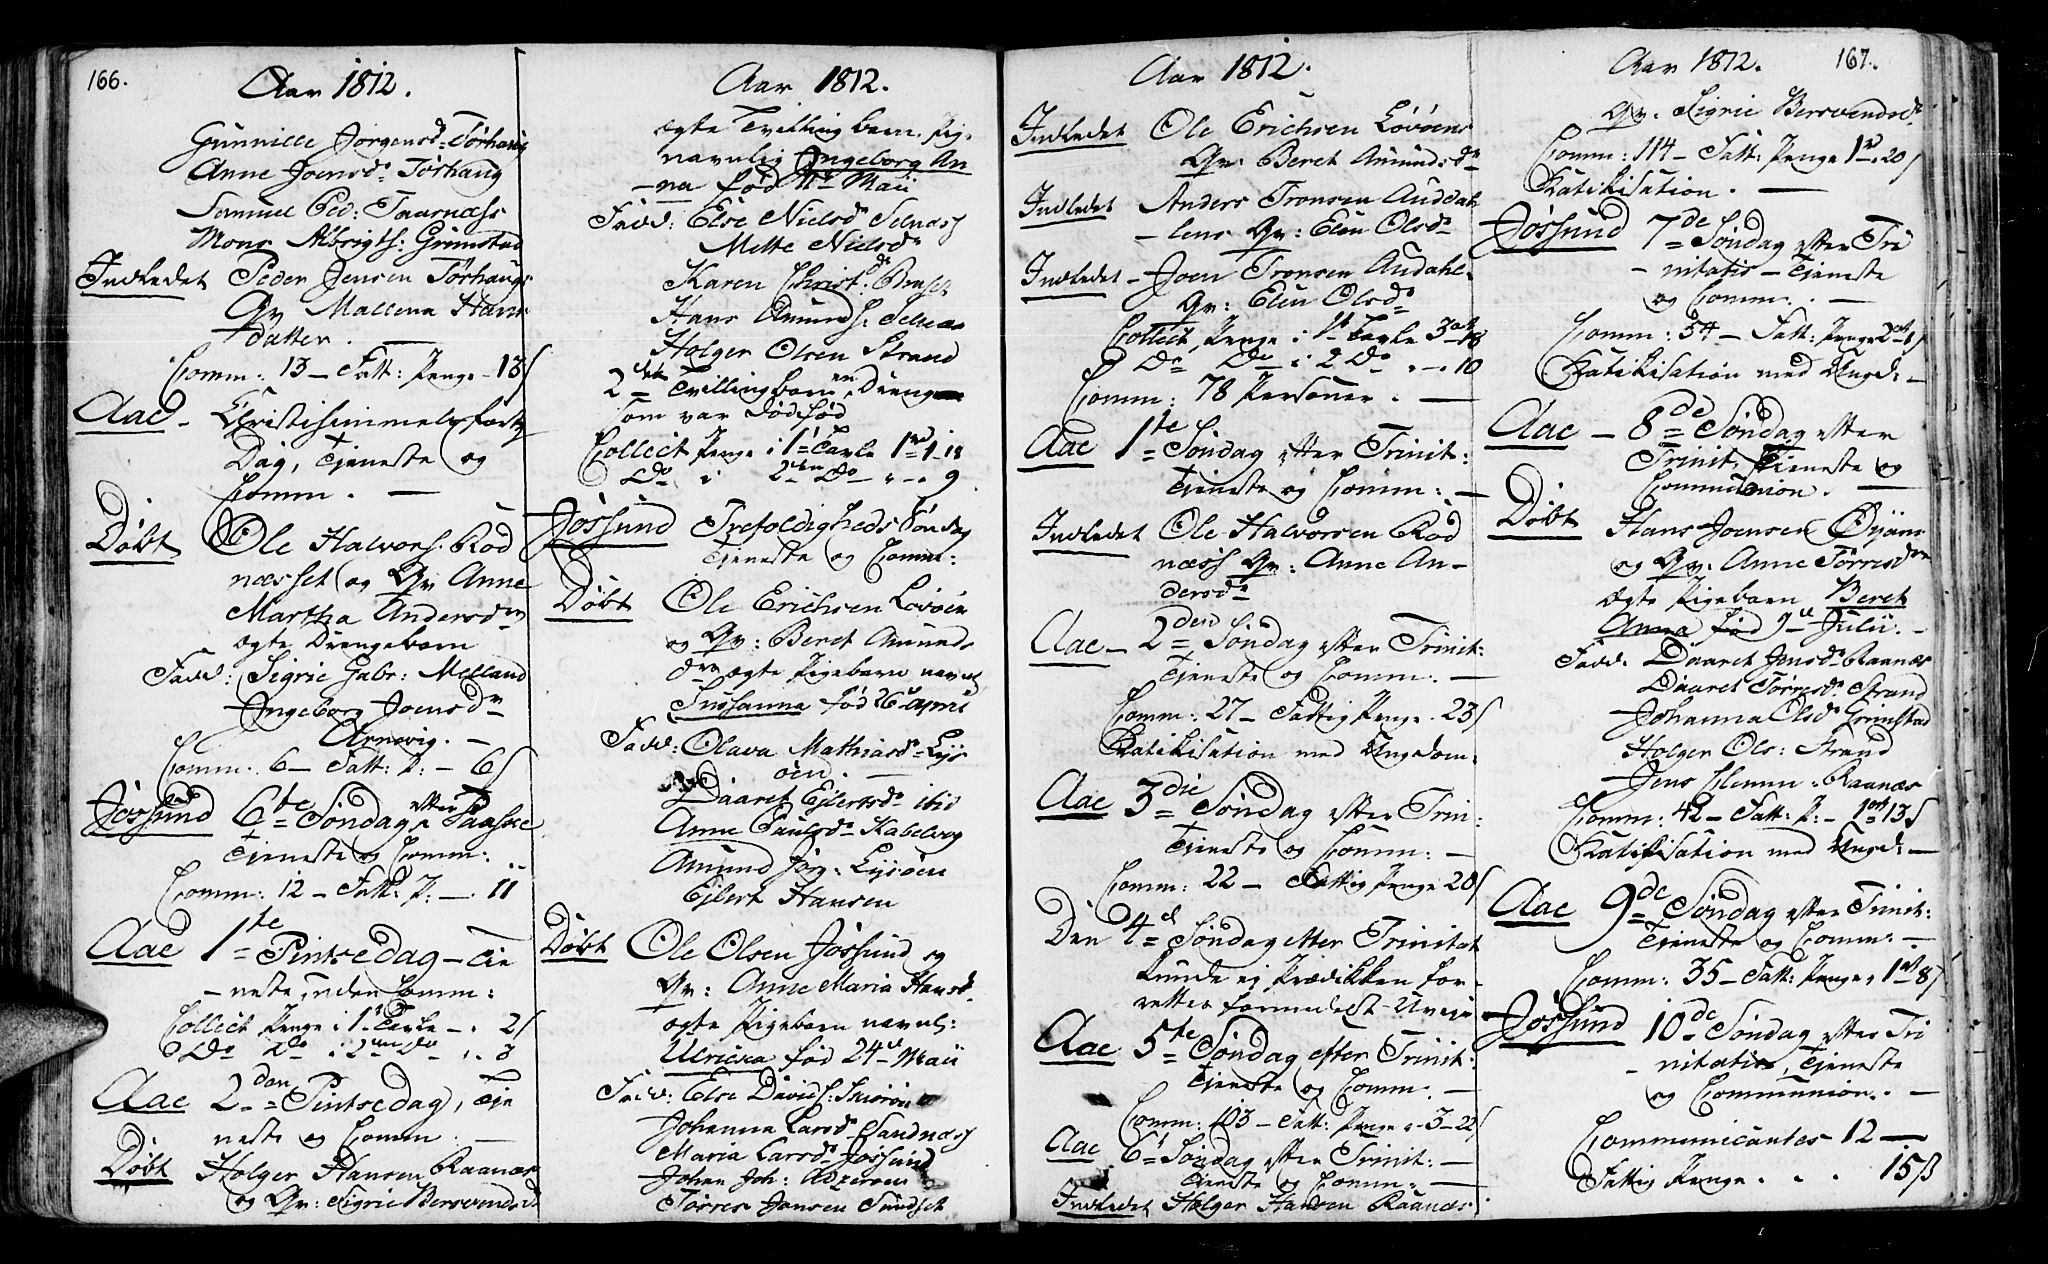 166.
Aar 1812.
Gunnille Jørgensd. Tørhaug
Anne Joensd. Tørhaug
Samuel Ped: Taarnæss
Mons Albrigth: Grimstad
Indledet Peder Jensen Tørhaugs
Qv Mallena Hans
datter. —
Comm: 13 — Fatt: Penge - 13ß
Aae - Christi himmelsfarts
Dag, Tjeneste og
Comm. —
Døbt Ole Halvors. Rød
næsset og Qv Anne
Martha Andersdr
ægte Drengebarn
Fadd: Sigrie Gabr: Melland
Ingeborg Joensdr
Arnevig. —
Comm. 6 — Fatt: P: — 6ß
Jøssund 6te Søndag efter Paaske
Tjeneste og Comm:
Comm: 12 — Fatt: P: — 11
Aae 1te Pintsedag — Tje
- neste, uden Comm:
Collect Penge i 1t Tavle — . 2ß
Do Do i 2den Do . . 3
Aae 2den Pintsedag, Tje
neste og Comm. —
Døbt Holger Hansen Raanæs
og Qv: Sigrie Bersvendsd
Aar 1812.
ægte Tvilling barn. Pig.
navnlig Ingeborg An
-na fød 11te Maii
Fadd: Else Nielsd Selnæss
Mette Nielsdr
Karen Christ:
Hans Amunds: Selnæs
Holger Olsen Strand
2det Tvilling barn en Dreng
som var Dødfød
Collect Penge i 1t Tavle 1rd 1. 18
Do i 2den Do " - . 9
Jøssund Trefoldigheds Søndag
Tjeneste og Comm:
Døbt Ole Erichsen Lovøen
og Qv: Beret Amunds
dr ægte Pigebarn navnl
Sussanna fød 26 April
Fadd: Olava Mathiasd. Lys
øen. —
Daaret Ejlertsd. ibid
Anne Paulsd. Kabelvog
Amund Jørg: Lysøen
Ejlert Hansen
Døbt Ole Olsen Jøssund og
Qv: Anne Maria Hansd.
ægte Pigebarn navnl:
Ulricka fød 24d Maii
Fadd: Else Davids:
Johanna Larsd. Sandnæss
Maria Larsd. Jøssund
Johan Joh:
Tørres Jensen Sundset
Aar 1812.
Indledet Ole Erichsen Lovøens
Qv: Beret Amundsdr
Indledet Anders Tronsen Auddah
- lens Qv: Elen Olsdr
Indledet - Joen Tronsen Audahl.
Qv: Elen Olsdr
Collect Penge i 1t Tavle 3ort 18
Do Do i 2 Do " - . 10
Comm: 78 Personer. —
Aae 1te Søndag efter Trinit:
Tjeneste og Comm: —
Indledet Ole Halvorsen Rød
næss Qv: Anne An-
dersdr
Aae - 2den Søndag efter Trinit:
Tjeneste og Comm. —
Comm: 27 — Fattig Penge. 23ß
Katikisation med Ungdom:
Aae 3die Søndag efter Trin:
Tjeneste og Comm: —
Comm: 22 — Fattig Penge 20ß
Den 4d Søndag etter Trinitat
kunde ej Prædikken for-
rettes formedelst Uvejr
Aae 5te Søndag efter Trinit:
Tjeneste og Comm. —
Comm: 103 — Fatt: Penge . 3 — 22ß
Aae 6t Søndag efter Trinit: —
Tjeneste og Comm: —
Indledet Holger Hansen Raanæs
Aar 1812. 167.
Qv: Sigrie Bersvendsdr
Comm: 114 — Fatt: Penge 1rd - 20ß
Katikisation. —
Jøssund 7de Søndag efter Tri
- nitatis — Tjeneste
og Comm. —
Comm: 34 — Fatt: Penge 2ort
Katikisation med Ungd: —
Aae — 8de Søndag efter
Trinit. Tjeneste og
Communion. —
Døbt Hans Joensen Øyan
og Qv: Anne Tørresdr
ægte Pigebarn Beret
Anna fød 9d Julii. -
Fadd. Daaret Jensd. Raanæs
Daaret Tørresd. Strand
Johanna Olsd. Grimstad
Holger Ols: Strand
Jens Clemm. Raanæs
Comm: 42 — Fatt: P: — 1ort 13ß
Katikisation med Ungd: —
Aae 9de Søndag efter Trinit:
Tjeneste og Comm: —
Comm: 35 — Fatt: Penge. 1ort 8ß
Jøssund 10de Søndag efter Tri
- nitatis, Tjeneste
og Communion. —
Communicantes 12 —
Fattig Penge . . . 15ß